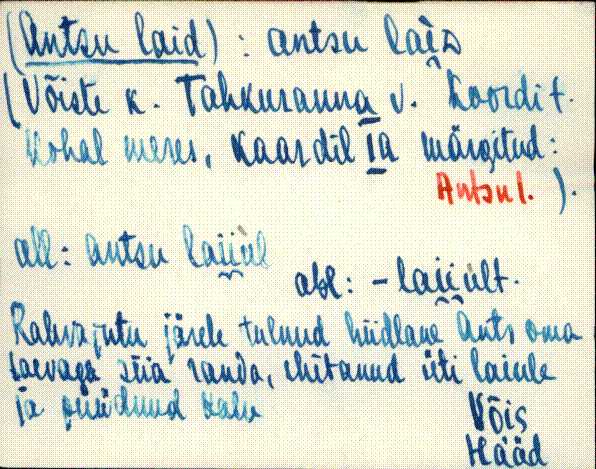 (Antsu laid) : antsu laìd
(Võiste k. Tahkuranna v. Koordi t.
kohal meres, kaardil Ia märgitud:
Antsu l. ).
all: antsu laiiùl
abl: – laiiùlt.
Rahvajutu järele tulnud hiidlane Ants oma
laevaga siia randa, ehitanud üti laiule
ja püüdnud kalu
Võis
Hääd